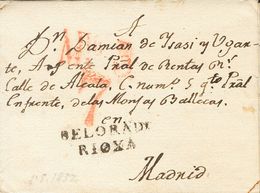 A
Dn. Damian de Isasi y Ugar-
te, Agente Pral de Rentas Nr.
Calle de Alcala, C. num.º 5 qto Pral
Enfrente, de las Monjas Ballecas.
en
BELORADO
RIOXA
Madrid